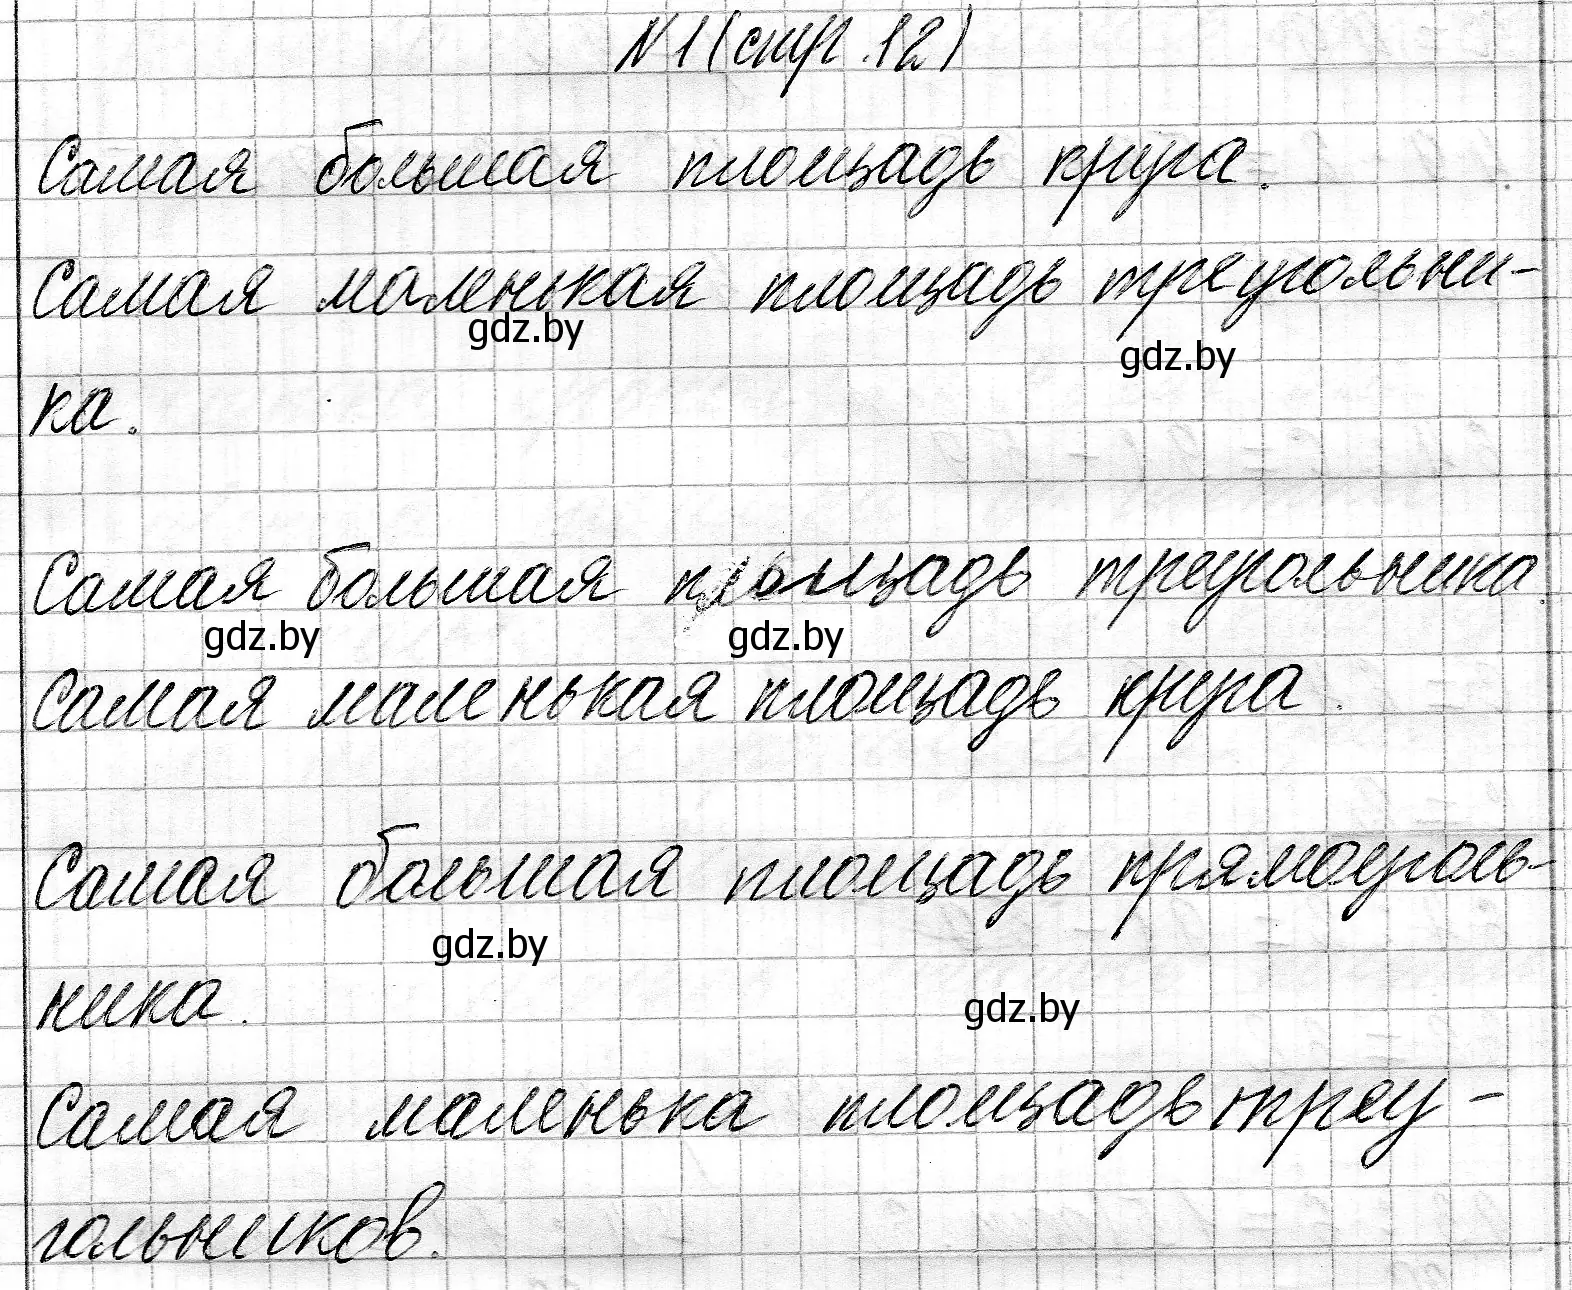 N1 (стр. 12)
Самая большая площадь круга.
Самая маленькая площадь треугольни-
gdz.by
gdz.by
ка.
Самая большая площадь треугольника.
gdz.by
gdz.by
Самая маленькая площадь круга.
Самая большая площадь прямоуголь-
gdz.by
ника.
gdz.by
Самая маленька площадь треу-
гольников.